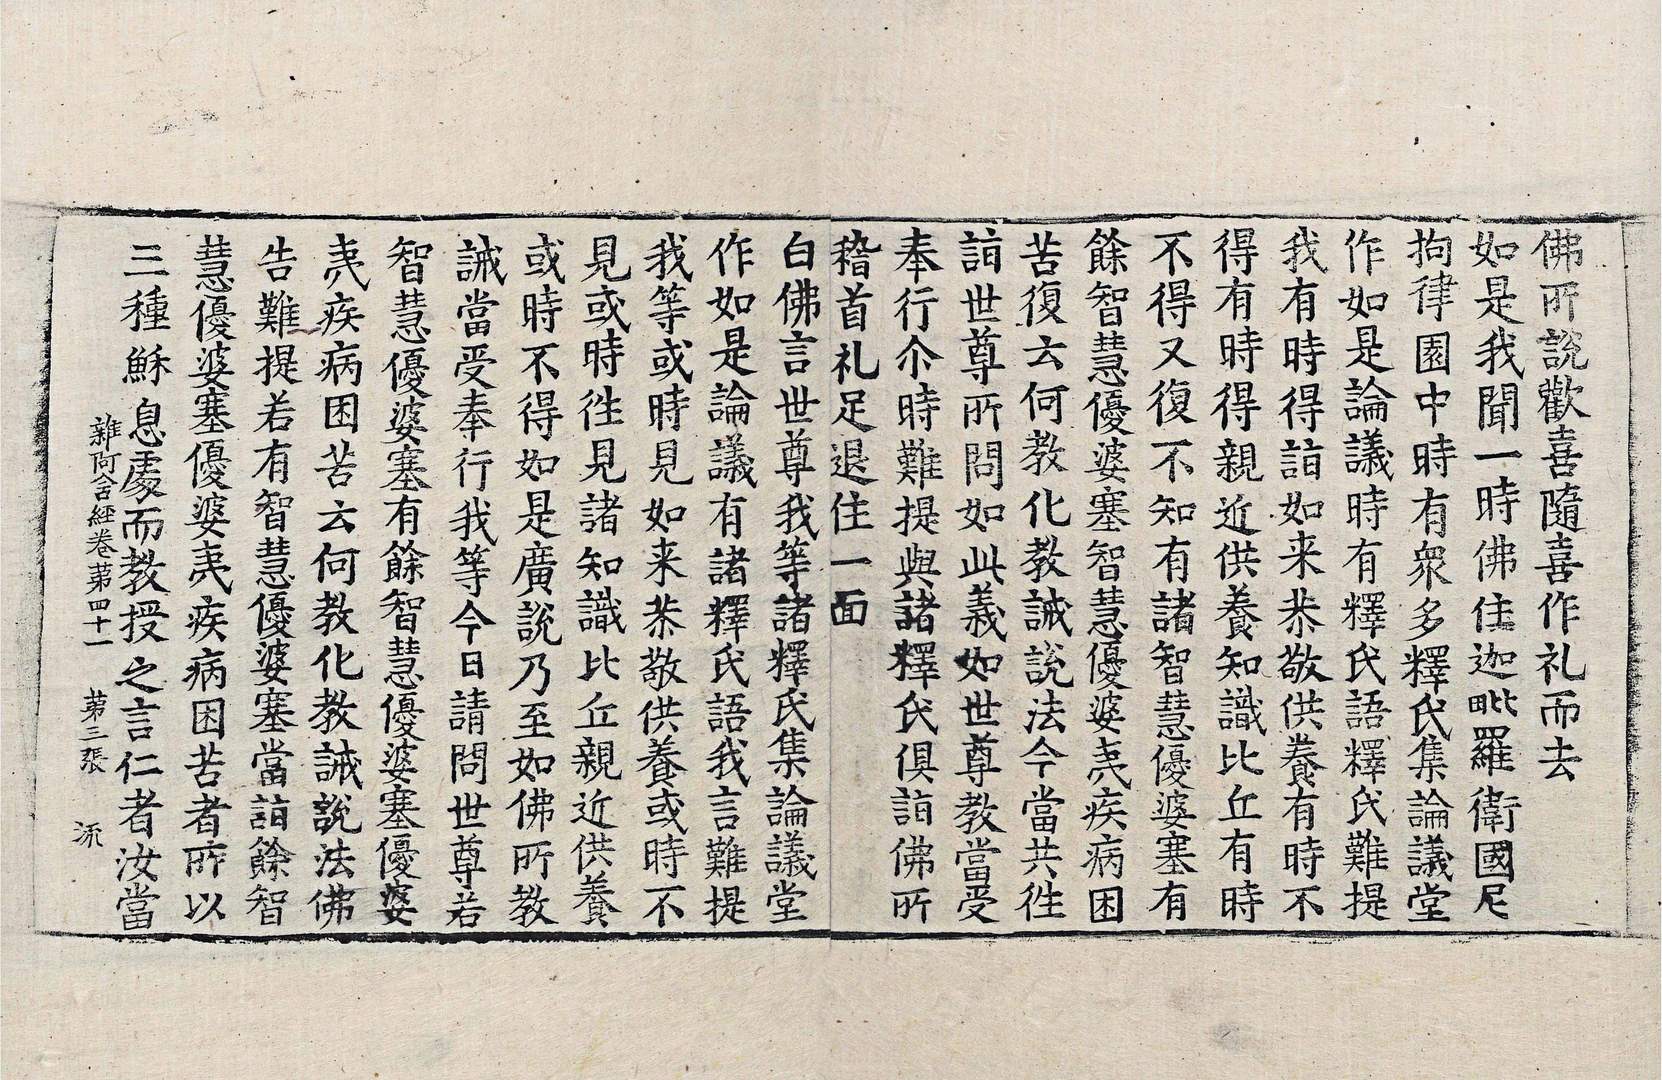 佛所說歡喜隨喜作礼而去
如是我聞一時佛住迦毗羅衛國尼
拘律園中時有衆多釋氏集論議堂
作如是論議時有釋氏語釋氏難提
我有時得詣如来恭敬供養有時不
得有時得親近供養知識比丘有時
不得又復不知有諸智慧優婆塞有
餘智慧優婆塞智慧優婆夷疾病困
苦復云何教化教誡說法今當共徃
詣世尊所問如此義如世尊教當受
奉行尒時難提與諸釋氏俱詣佛所
稽首礼足退住一面
白佛言世尊我等諸釋氏集論議堂
作如是論議有諸釋氏語我言難提
我等或時見如来恭敬供養或時不
見或時徃見諸知識比丘親近供養
或時不得如是廣說乃至如佛所教
誡當受奉行我等今日請問世尊若
智慧優婆塞有餘智慧優婆塞優婆
夷疾病困苦云何教化教誡說法佛
告難提若有智慧優婆塞當詣餘智
慧優婆塞優婆夷疾病困苦者所以
三種穌息處而教授之言仁者汝當
雜阿含經卷苐四十一 苐三張 流